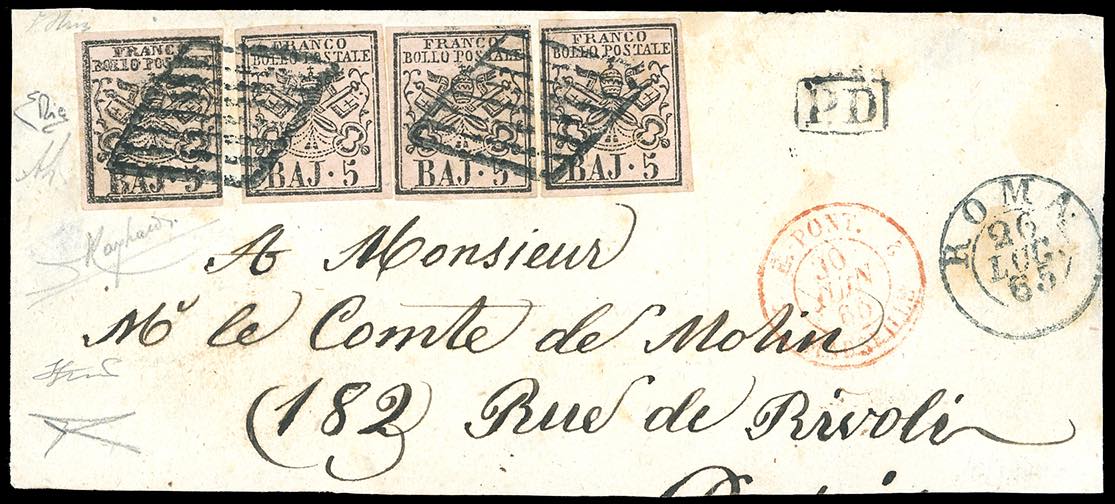 FRANCO
BOLLO POSTALE
BAJ. 5
FRANCO
BOLLO POSTALE
BAJ. 5
FRANCO
BOLLO POSTALE
BAJ. 5
FRANCO
BOLLO POSTALE
BAJ. 5
P.D
ROMA
26
LUG
65
E. PONT. 2
30
A Monsieur
Mr le Comte de Molin
(182 Rue de Rivoli